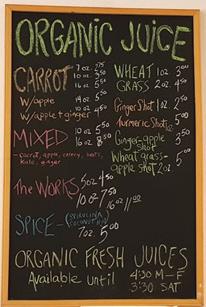 ORGANIC JUICE
CARROT 7oz. 2.75
10oz. 3.50
16oz. 5.50
W/apple 10oz. 4.50
W/apple + ginger 16oz. 8.50
MIXED 10oz. 5.50
- carrot, apple, celery, beets, 16oz. 8.50
Kale, ginger
The WORKS 5oz 4.50
10oz 7.50
16oz 11.00
SPICE - (SPIRULINA
7oz. 5.00
WHEAT 1oz 3.00
GRASS 2oz. 4.50
Ginger Shot 1oz 2.50
Turmeric Shot 1oz
Ginger-apple
Shot
Wheat grass-
apple Shot 2oz
ORGANIC FRESH JUICES
Available until 4:30 M-F
3:30 SAT